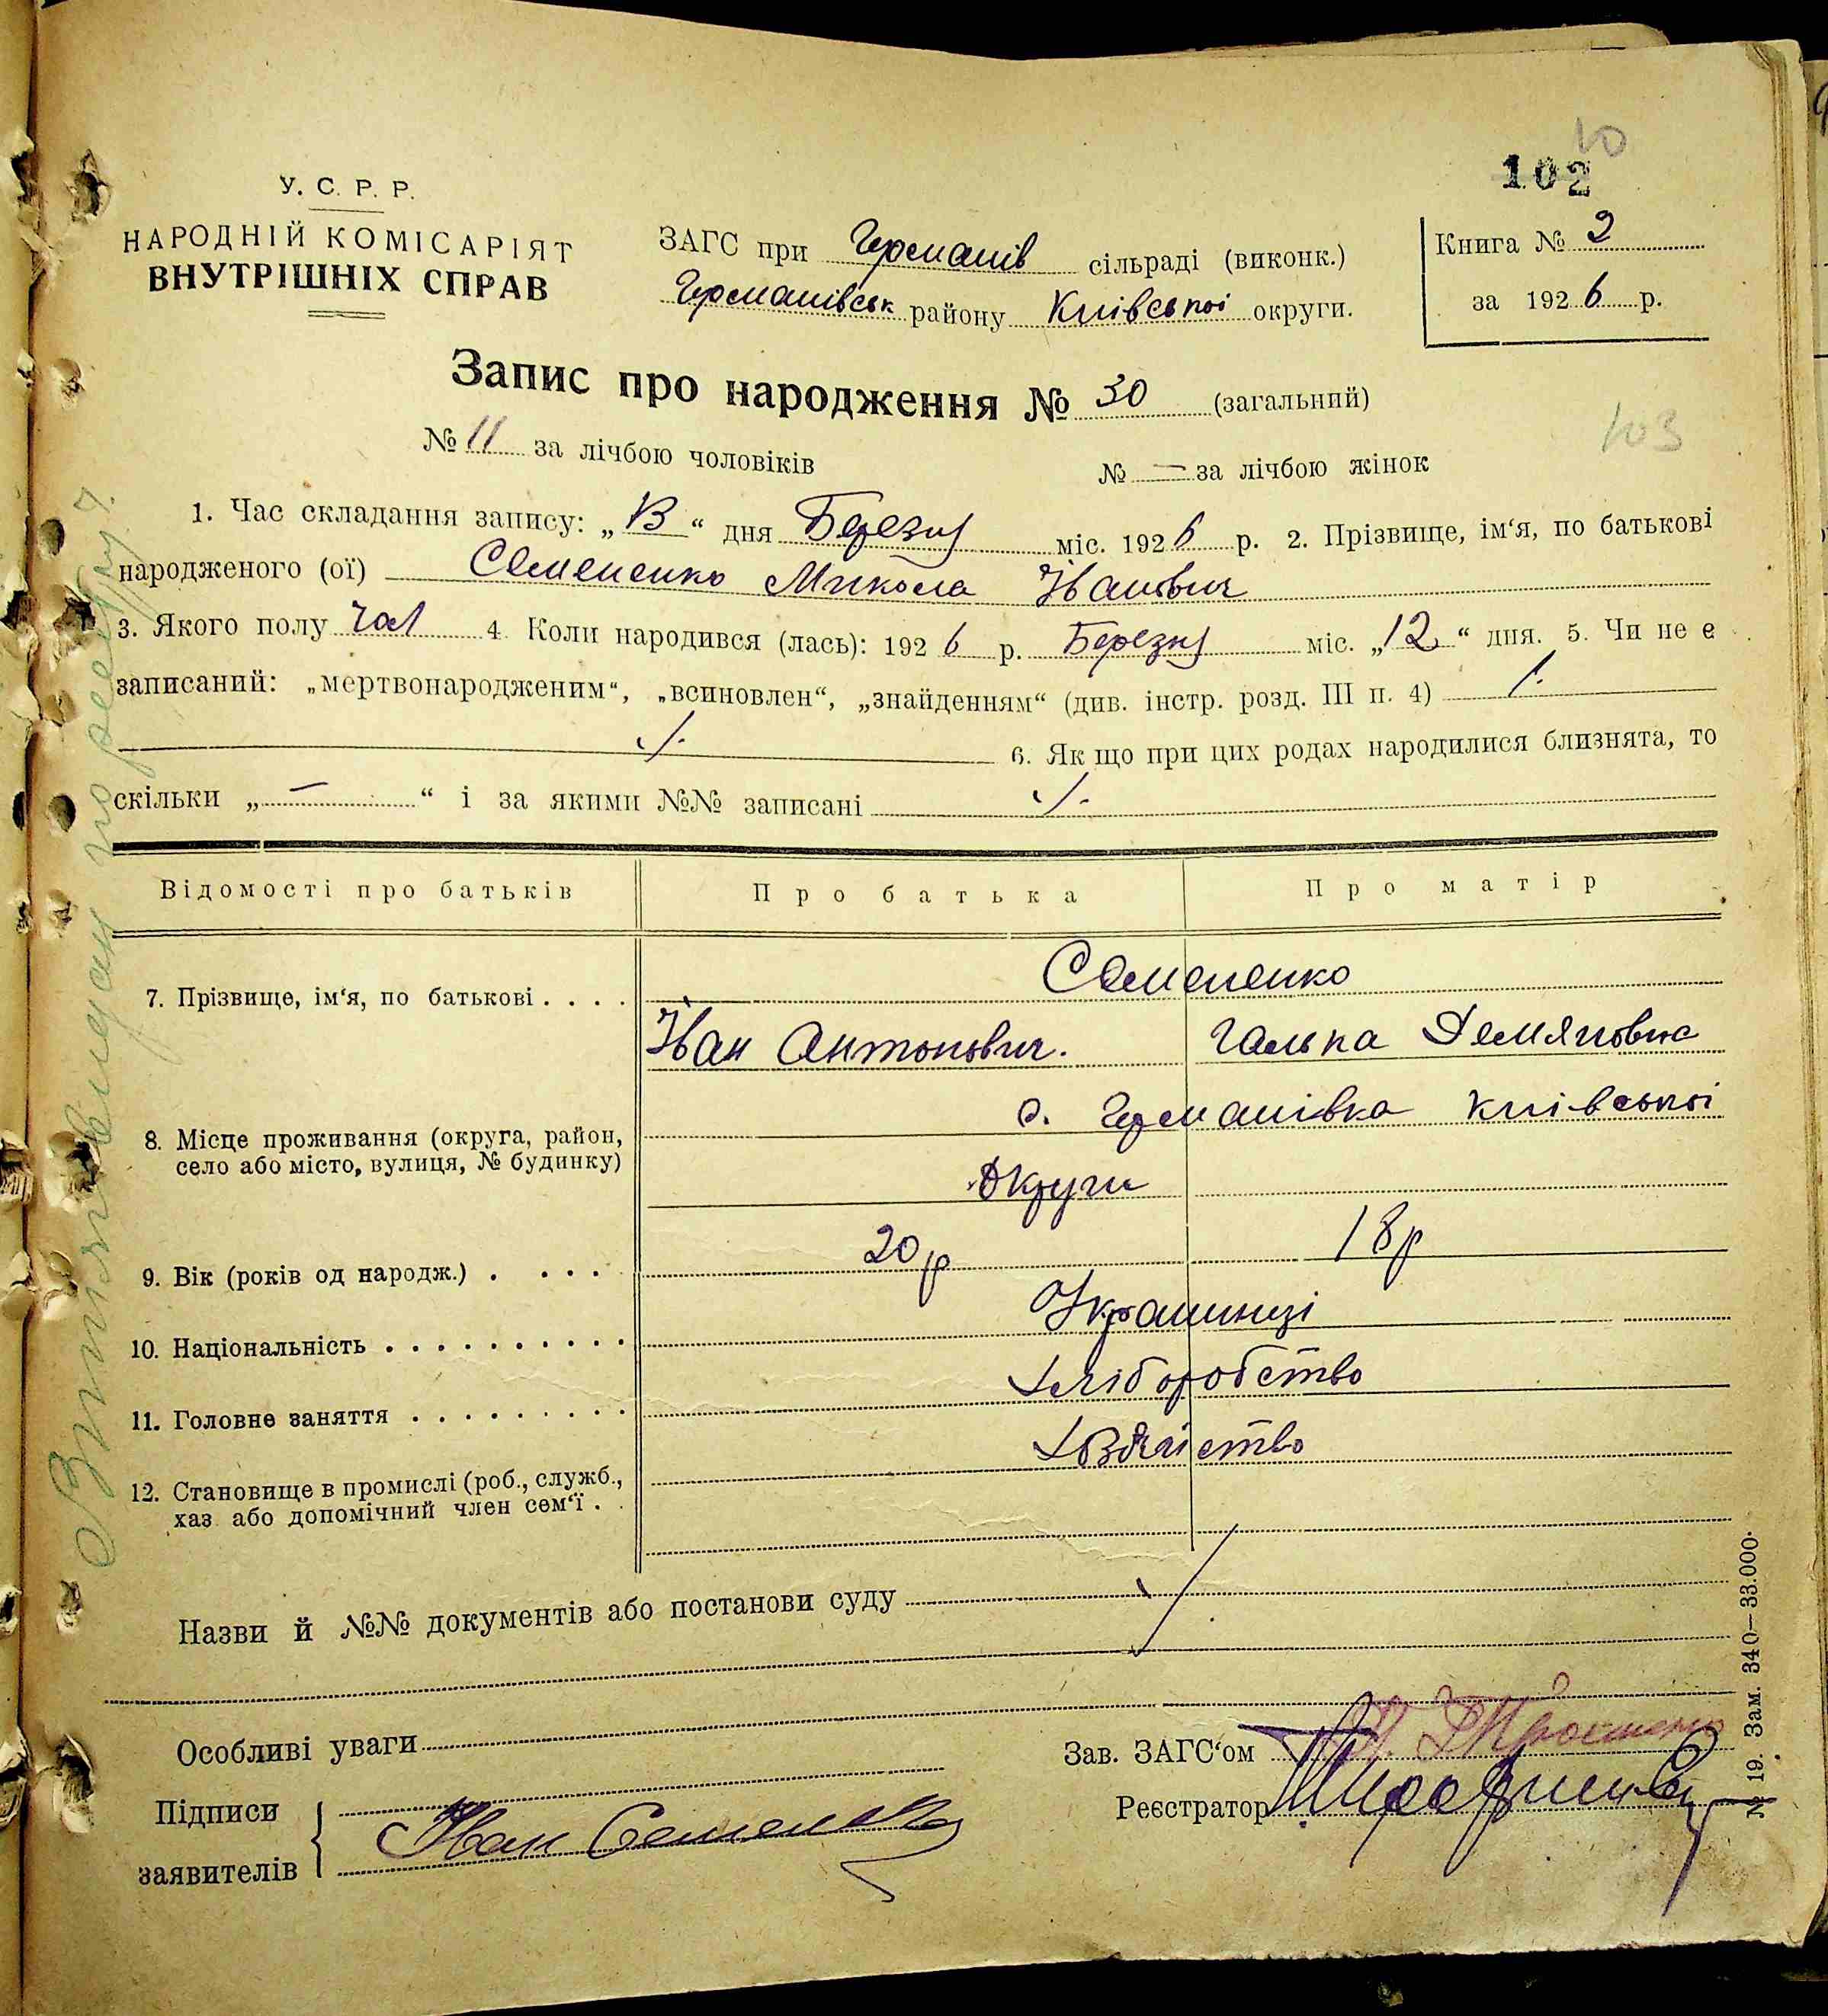 10
102
У. С. Р. Р.
НАРОДНІЙ КОМІСАРІЯТ
ВНУТРІШНІХ СПРАВ
ЗАГС при Германів сільраді (виконк.)
Германівськ району Київської округи.
Книга № 2
за 1926 р.
Запис про народження № 30 (загальний)
103
№ 11 за лічбою чоловіків № — за лічбою жінок
1. Час складання запису: „13“ дня Березня міс. 1926 р. 2. Прізвище, ім‘я, по батькові
народженого (ої) Семененко Микола Іванович
3. Якого полу чол 4. Коли народився (лась): 1926 р. Березня міс. „12“ дня. 5. Чи не є
записаний: „мертвонародженим“, „всиновлен“, „знайденням“ (див. інстр. розд. III п. 4)
6. Як що при цих родах народилися близнята, то
скільки „—“ і за якими №№ записані
Відомості про батьків Про батька Про матір
Семененко
7. Прізвище, ім‘я, по батькові . . . .
Іван Антонович. Галька Демяновна
с. Германівка Київської
8. Місце проживання (округа, район,
село або місто, вулиця, № будинку)
Округи
9. Вік (років од народж.) . . . . 20 р 18 р
10. Національність . . . . . . . . . . Украинці
11. Головне заняття . . . . . . . . . Хліборобство
12. Становище в промислі (роб., служб.,
хаз або допомічний член сем‘ї . .
Назви й №№ документів або постанови суду
Особливі уваги
Зав. ЗАГС‘ом
Підписи
заявителів
Іван Семененко
Реєстратор
№ 19. Зам. 340—33.000.